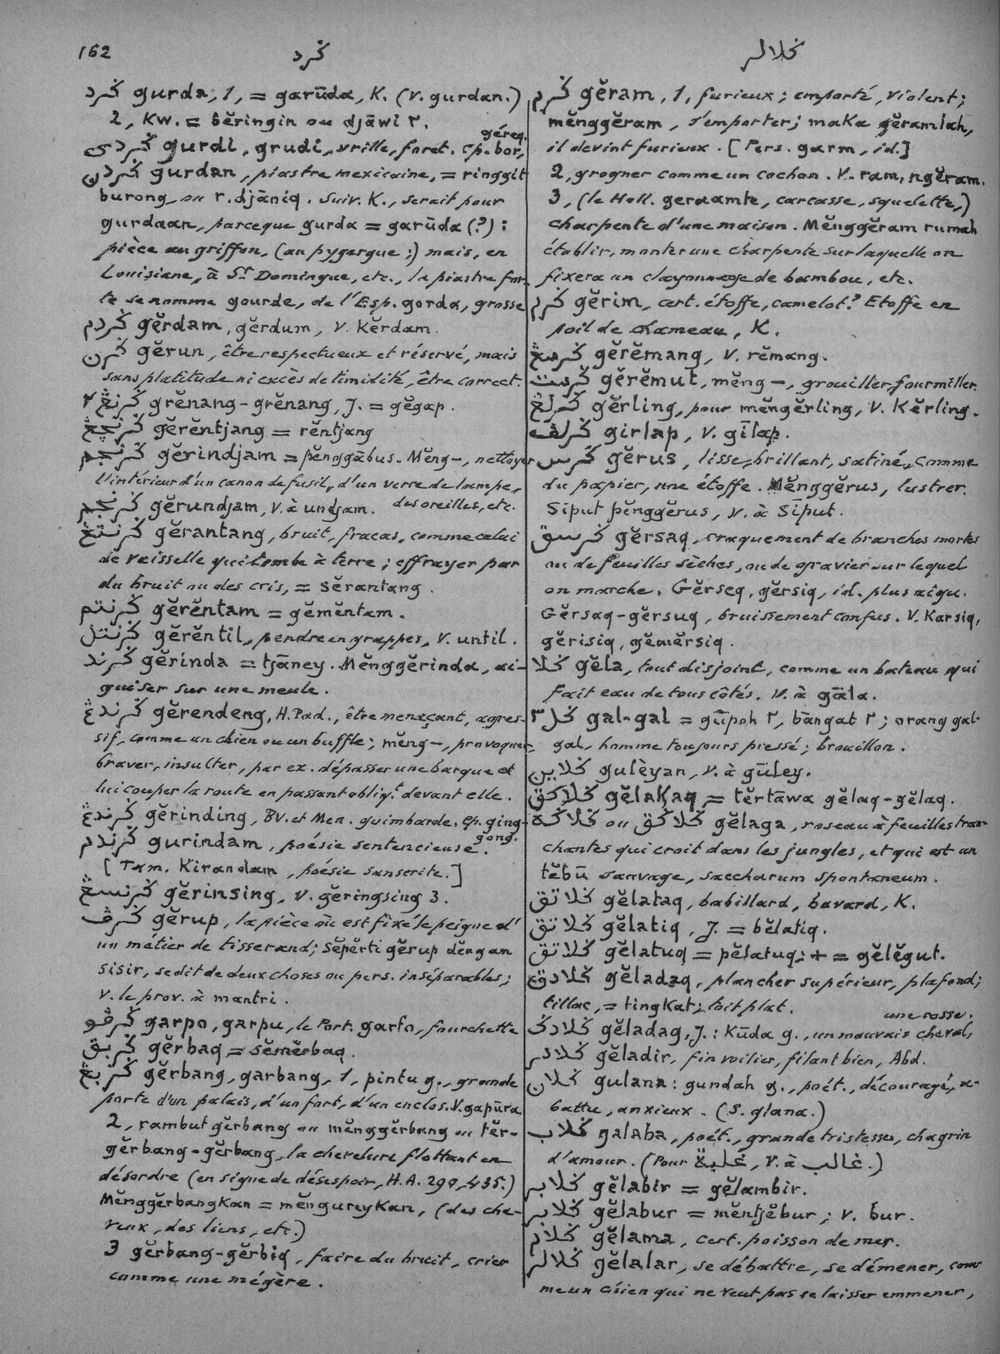 162
ݢرد
ݢلالر
ݢرد gurda, 1, = garūda, K. (V. gurdan.)
2, Kw. = bĕringin ou djāwi ٢.
géreq.
ݢردى gurdi, grudi, vrille, foret. Cp. bor,
ݢردن gurdan, piastre mexicaine, = ringgit
burong ou r. djāniq. Suiv. K., serait pour
gurdaan, parceque gurda = garūda (?) :
pièce au griffon, (au pygargue :) mais, en
Louisiane, à St Domingue, etc., la piastre for-
te se nomme gourde, de l'Esp. gorda, grosse
ݢردم gĕrdam, gĕrdum, V. Kĕrdam.
ݢرن gĕrun, être respectueux et réservé, mais
sans platitude ni excès de timidité, être correct.
ݢرنڠ٢ grĕnang-grĕnang, J. = gĕgap.
ݢرنچڠ gĕrĕntjang = rĕntjang
ݢرنجم gĕrindjam = pĕnggābus. Mĕng-, nettoyer
l'intérieur d'un canon de fusil, d'un verre de lampe,
des oreilles, etc.
ݢرنجم gĕrundjam, V. à undjam.
ݢرنتڠ gĕrantang, bruit, fracas, comme celui
de vaisselle qui tombe à terre; effrayer par
du bruit ou des cris, = Sĕrantang.
ݢرنتم gĕrĕntam = gĕmĕntam.
ݢرنتل gĕrĕntil, pendre en grappes, V. until.
ݢرند gĕrinda = tjāney. Mĕnggĕrinda, ai-
guiser sur une meule.
ݢرندڠ gĕrendeng, H. Pad., être menaçant, agres-
sif, comme un chien ou un buffle; mĕng-, provoquer
braver, insulter, par ex. dépasser une barque et
lui couper la route en passant obliqt devant elle.
ݢرندڠ gĕrinding, BV. et Men. guimbarde. Cp. ging-
gong.
ݢرندم gurindam, poésie sentencieuse.
[Tam. Kirandam, poésie sanscrite.]
ݢرنسڠ gĕrinsing, V. gĕringsing 3.
ݢرڤ gĕrup, la pièce où est fixé le peigne d'
un métier de tisserand; Sĕpĕrti gĕrup dĕngan
sisir, se dit de deux choses ou pers. inséparables;
v. le prov. à mantri.
ݢرڤو garpo, garpu, le Port. garfo, fourchette
ݢربق gĕrbaq = sĕmĕrbaq.
ݢربڠ gĕrbang, garbang, 1, pintu g., grande
porte d'un palais, d'un fort, d'un enclos. V. gapūra
2, rambut gĕrbang ou mĕnggĕrbang ou tĕr-
gĕrbang-gĕrbang, la chevelure flottant en
désordre (en signe de désespoir, H.A. 290, 435.)
MĕnggĕrbangKan = mĕngureyKan, (des che-
veux, des liens, etc.)
3 gĕrbang-gĕrbiq, faire du bruit, crier
comme une mégère.
ݢرم gĕram, 1, furieux; emporté, violent;
mĕnggĕram, s'emporter; maka gĕramlah,
il devint furieux. [Pers. garm, id.]
2, grogner comme un cochon. V. ram, ngĕram.
3, (le Holl. geraamte, carcasse, squelette,)
charpente d'une maison. Mĕnggĕram rumah
établir, monter une charpente sur laquelle on
fixera un clayonnage de bambou, etc.
ݢرم gĕrim, cert. étoffe, camelot? Etoffe en
poil de chameau, K.
ݢرمڠ gĕrĕmang, V. rĕmang.
ݢرمت gĕrĕmut, mĕng-, grouiller, fourmiller.
ݢرلڠ gĕrling, pour mĕngĕrling, V. Kĕrling.
ݢرلڤ girlap, V. gīlap.
ݢرس gĕrus, lisse, brillant, satiné, comme
du papier, une étoffe. Mĕnggĕrus, lustrer.
Siput pĕnggĕrus, V. à Siput.
ݢرسق gĕrsaq, craquement de branches mortes
ou de feuilles sèches, ou de gravier sur lequel
on marche. Gĕrseq, gĕrsiq, id. plus aigu.
Gĕrsaq-gĕrsuq, bruissement confus. V. Karsiq,
gĕrisiq, gĕmĕrsiq.
ݢلا gĕla, tout disjoint, comme un bateau qui
fait eau de tous côtés. V. à gāla.
ݢل٢ gal-gal = gūpoh ٢, bāngat ٢; orang gal-
gal, homme toujours pressé; brouillon.
ݢلاين gulèyan, V. à gūley.
ݢلاكق gĕlaKaq = tĕrtāwa gĕlaq-gĕlaq.
ݢلاݢه ou ݢلاݢق gĕlaga, roseau à feuilles tran-
chantes qui croit dans les jungles, et qui est un
tĕbū sauvage, saccharum spontaneum.
ݢلاتق gĕlataq, babillard, bavard, K.
ݢلاتق gĕlatiq, J. = bĕlatiq.
ݢلاتق gĕlatuq = pĕlatuq; + = gĕlĕgut.
ݢلادق gĕladaq, plancher supérieur, plafond;
tillac, = tingKat; toit plat.
une rosse.
ݢلادݢ gĕladag, J. : Kūda g., un mauvais cheval,
ݢلادر gĕladir, fin voilier, filant bien, Abd.
ݢلان gulana : gundah g., poét., découragé, a-
battu, anxieux. (S. glana.)
ݢلاب galaba, poét., grande tristesse, chagrin
d'amour. (Pour غلبة, V. à غالب.)
ݢلابر gĕlabir = gĕlambir.
ݢلابر gĕlabur = mĕntjĕbur; V. bur.
ݢلام gĕlama, cert. poisson de mer.
ݢلالر gĕlalar, se débattre, se démener, com-
me un chien qui ne veut pas se laisser emmener,